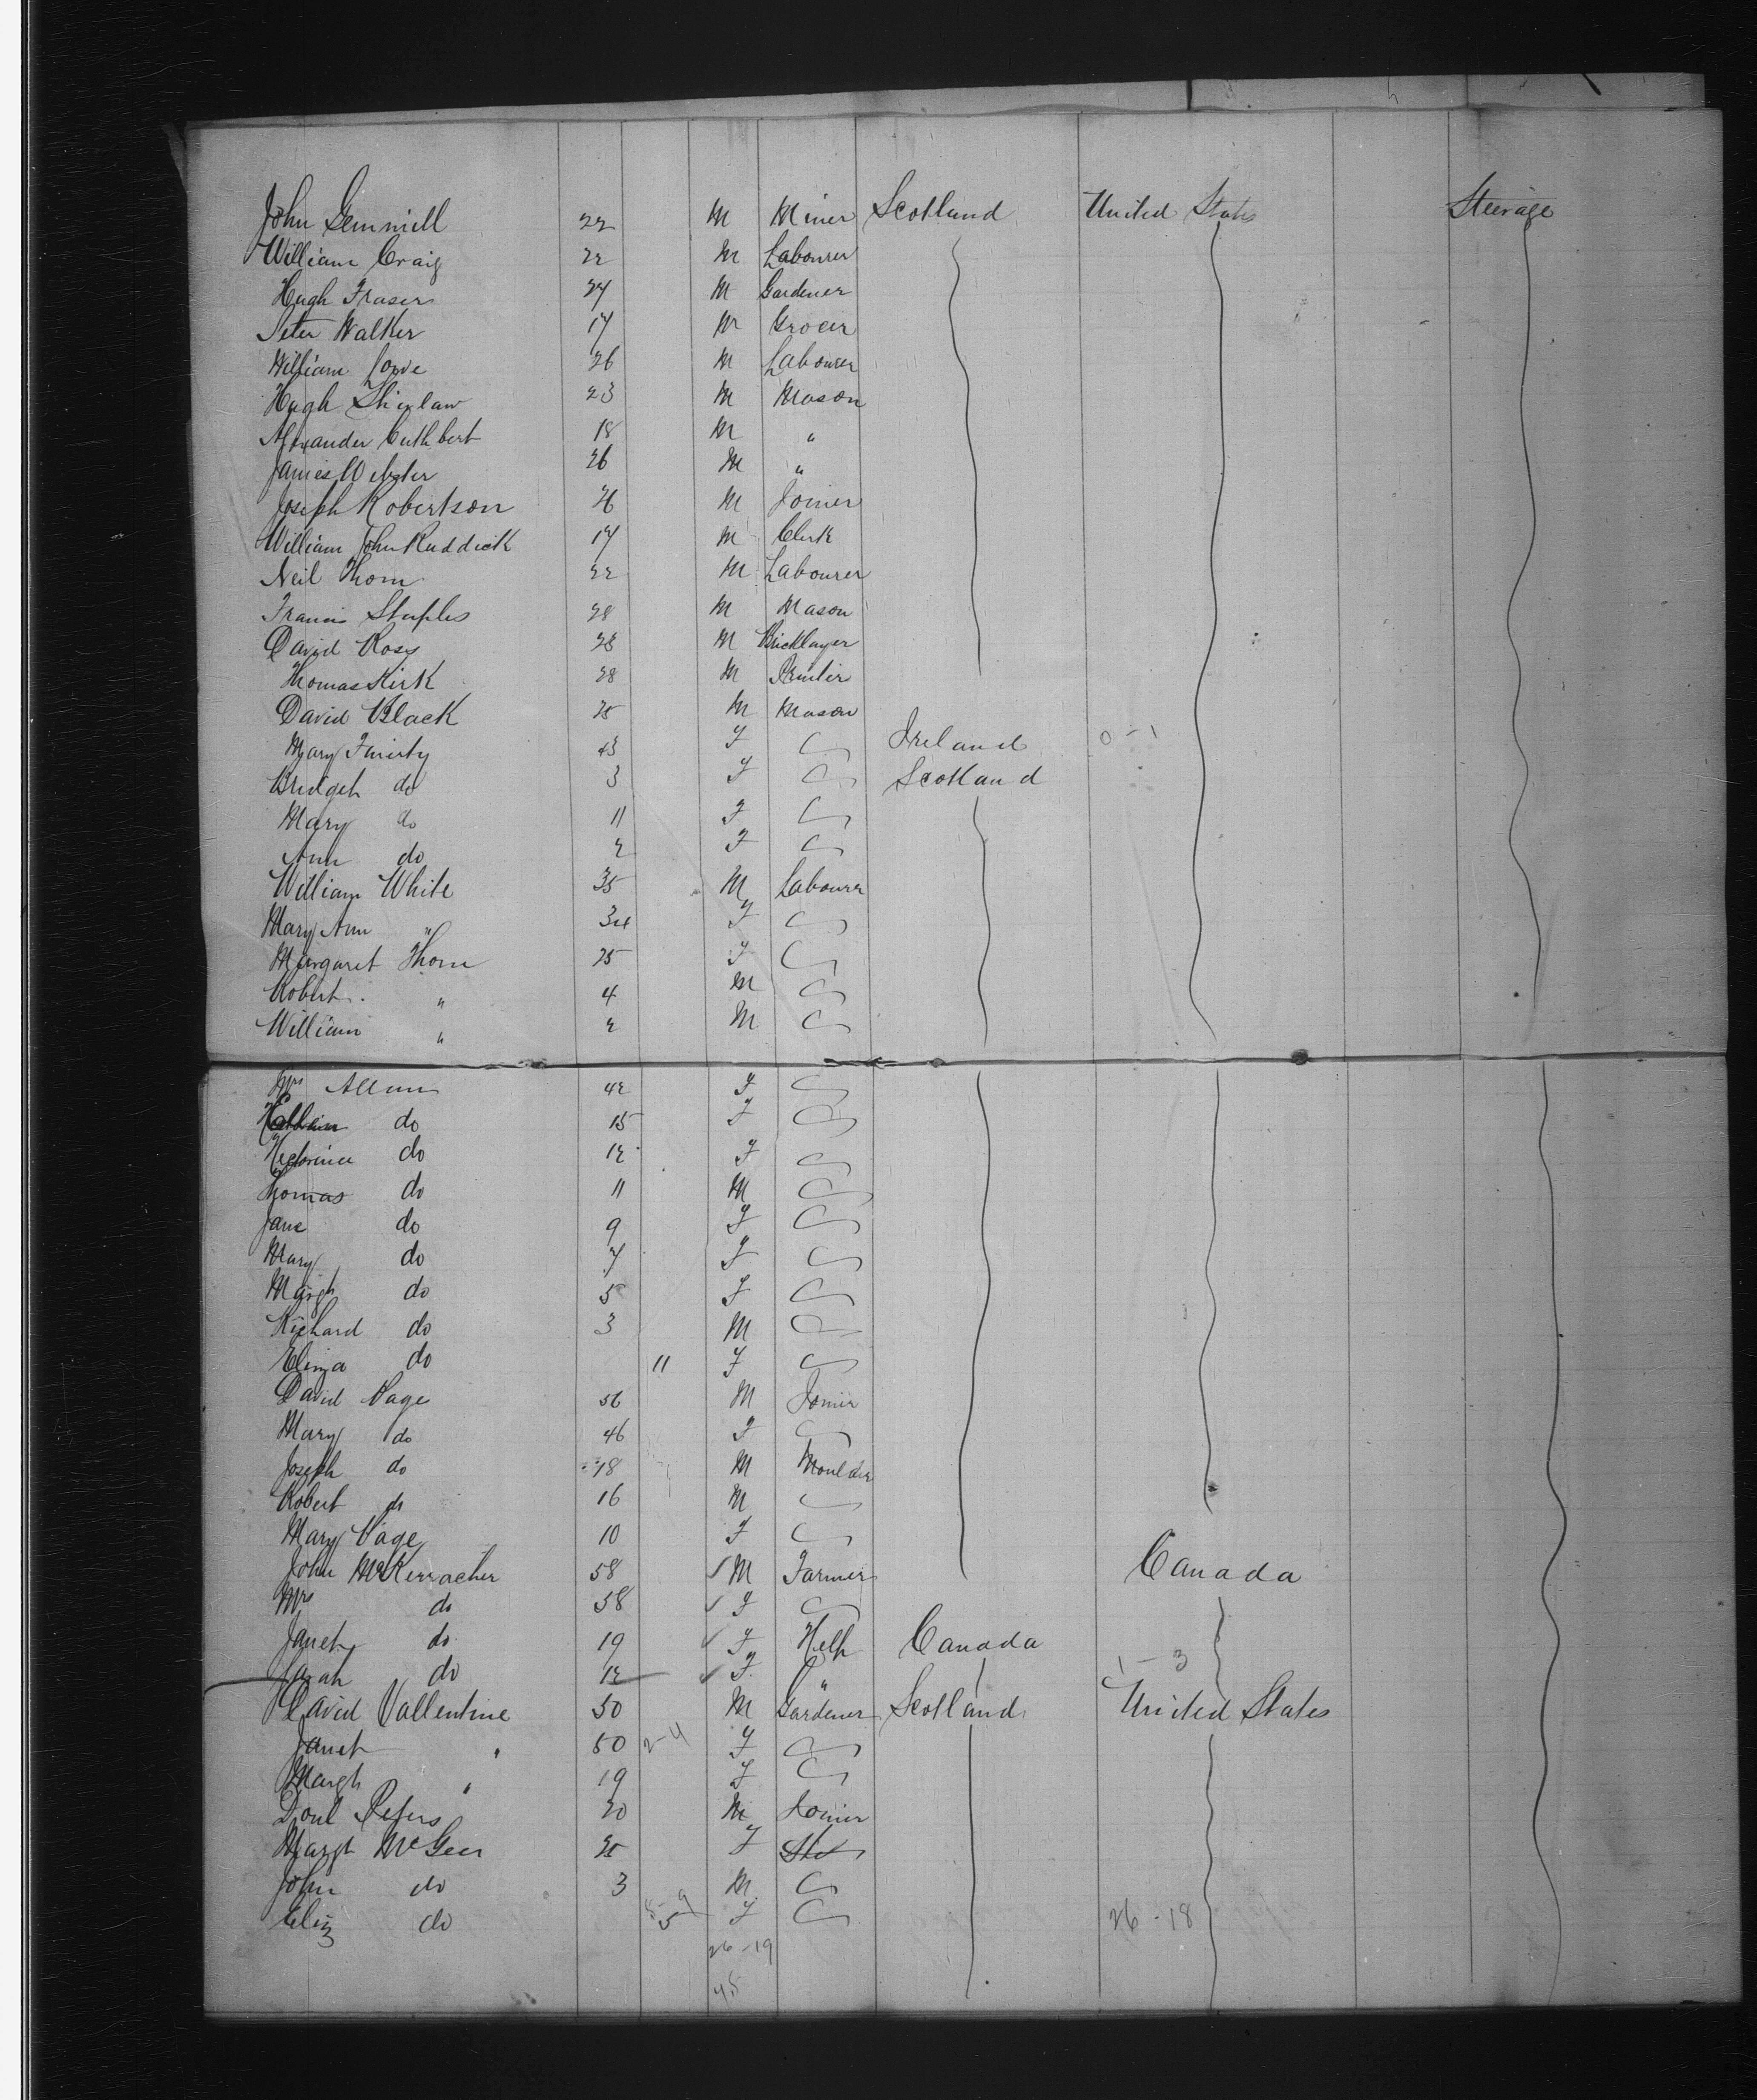 John Gemmill 22 M Miner Scotland United States Steerage
William Craig 22 M Labourer
Hugh Fraser 24 M Gardener
Peter Walker 17 M Grocer
William Lowe 26 M Labourer
Hugh Shirlaw 23 M Mason
Alexander Cuthbert 18 M "
James Webster 26 M "
Joseph Robertson M Joiner
William John Ruddick 17 M Clerk
Neil Thom 22 M Labourer
Francis Staples 28 M Mason
David Ross 28 M Bricklayer
Thomas Kirk 28 M
David Black 25 M Mason
Mary 43 F Ireland 0 - 1
Bridget do 3 F Scotland
Mary do 11 F
Ann do 2 F
William White 35 M Labourer
Mary Ann " 34 F
Margaret Thom 25 F
Robert " 4 M
William " 2 M
Mrs Allan 42 F
do 15 F
Hectorina do 12 F
Thomas do 11 M
Jane do 9 F
Mary do 7 F
Margt do 5 F
Richard do 3 M
Eliza do 11 F
David Page 56 M Joiner
Mary do 46 F
Joseph do 18 M Moulder
Robert do 16 M
Mary Page 10 F
John McKerracher 58 M Farmer Canada
Mrs do 58 F
Janet do 19 F Help Canada
Sarah do 12 F " 1 - 3
David Vallentine 50 M Gardener Scotland United States
Janet " 50 2-4 F
Margt " 19 F
Peters 20 M Joiner
Margt McGeer F
John do 3 M
Eliz do F 26 - 18
26 - 19
45